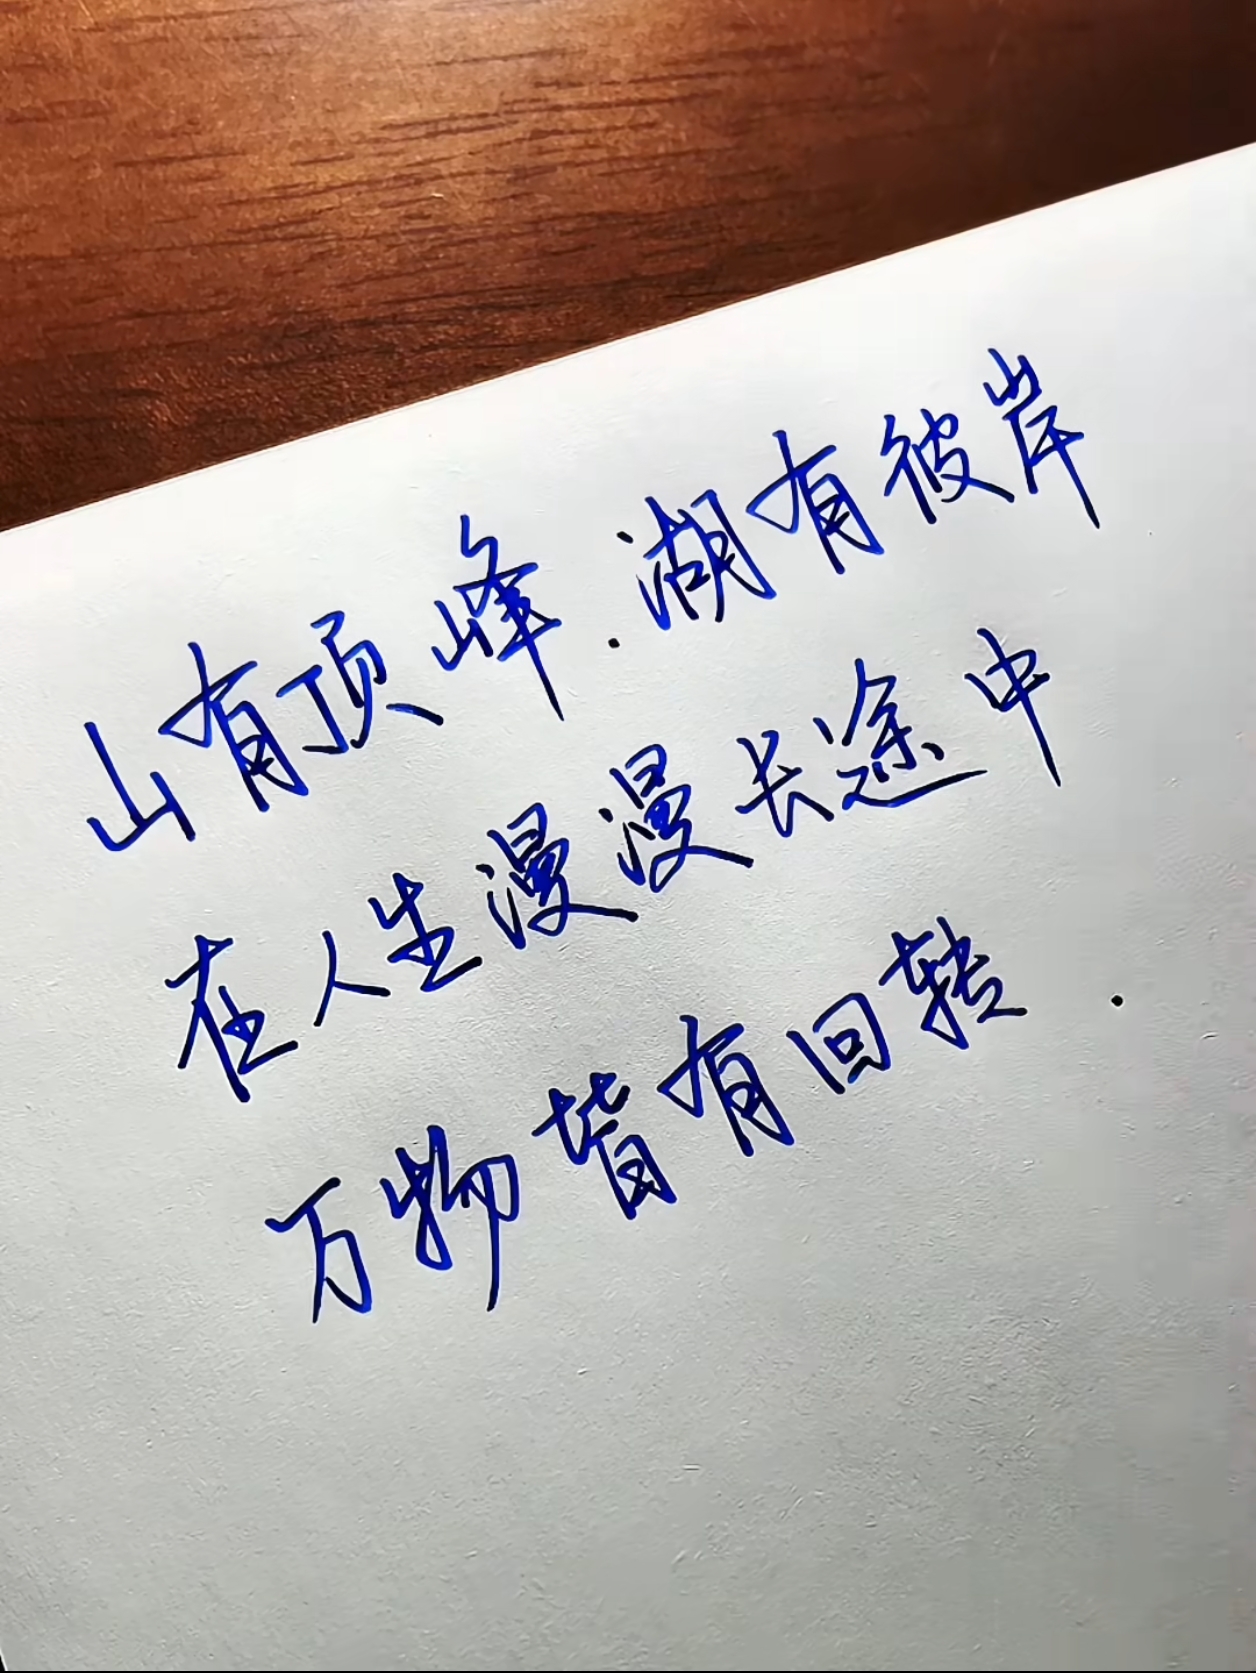 山有顶峰.湖有彼岸
在人生漫漫长途中
万物皆有回转.